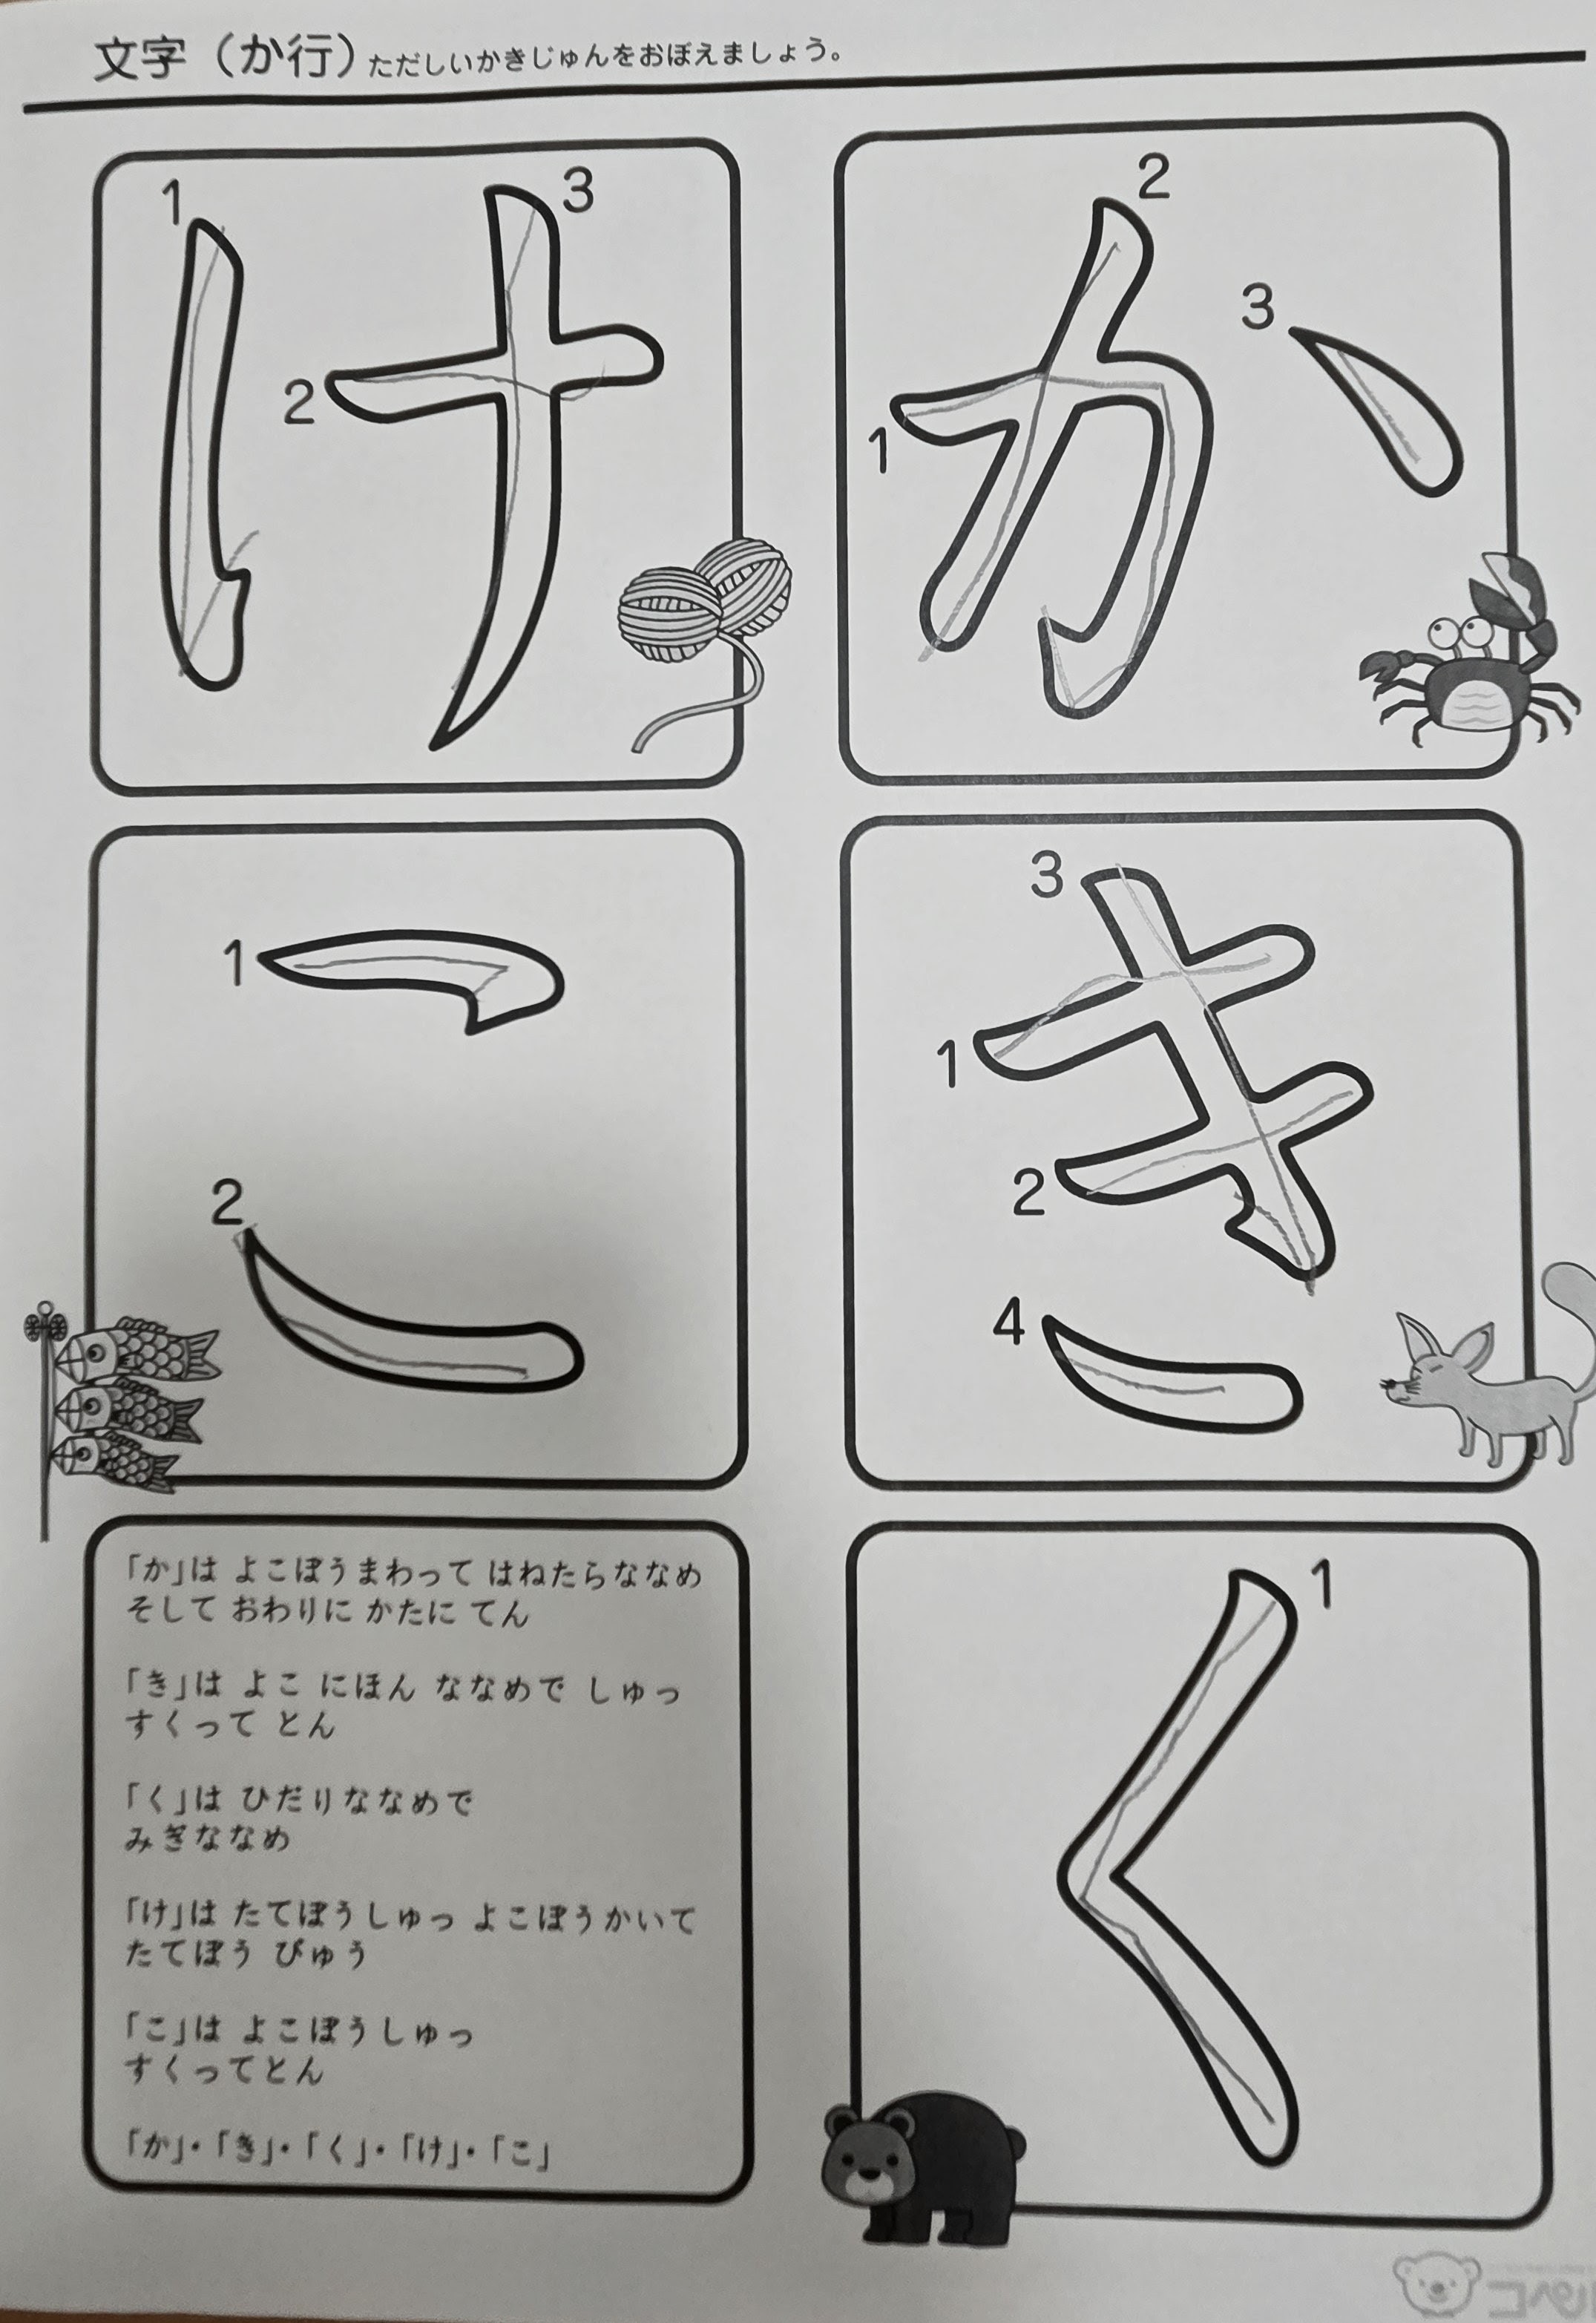 文字（か行）ただしいかきじゅんをおぼえましょう。
か
1
2
3
き
1
2
3
4
く
1
け
1
2
3
こ
1
2
「か」は よこぼうまわって はねたらななめ
そして おわりに かたに てん
「き」は よこ にほん ななめで しゅっ
すくって とん
「く」は ひだりななめで
みぎななめ
「け」は たてぼうしゅっ よこぼうかいて
たてぼう ぴゅう
「こ」は よこぼうしゅっ
すくってとん
「か」・「き」・「く」・「け」・「こ」